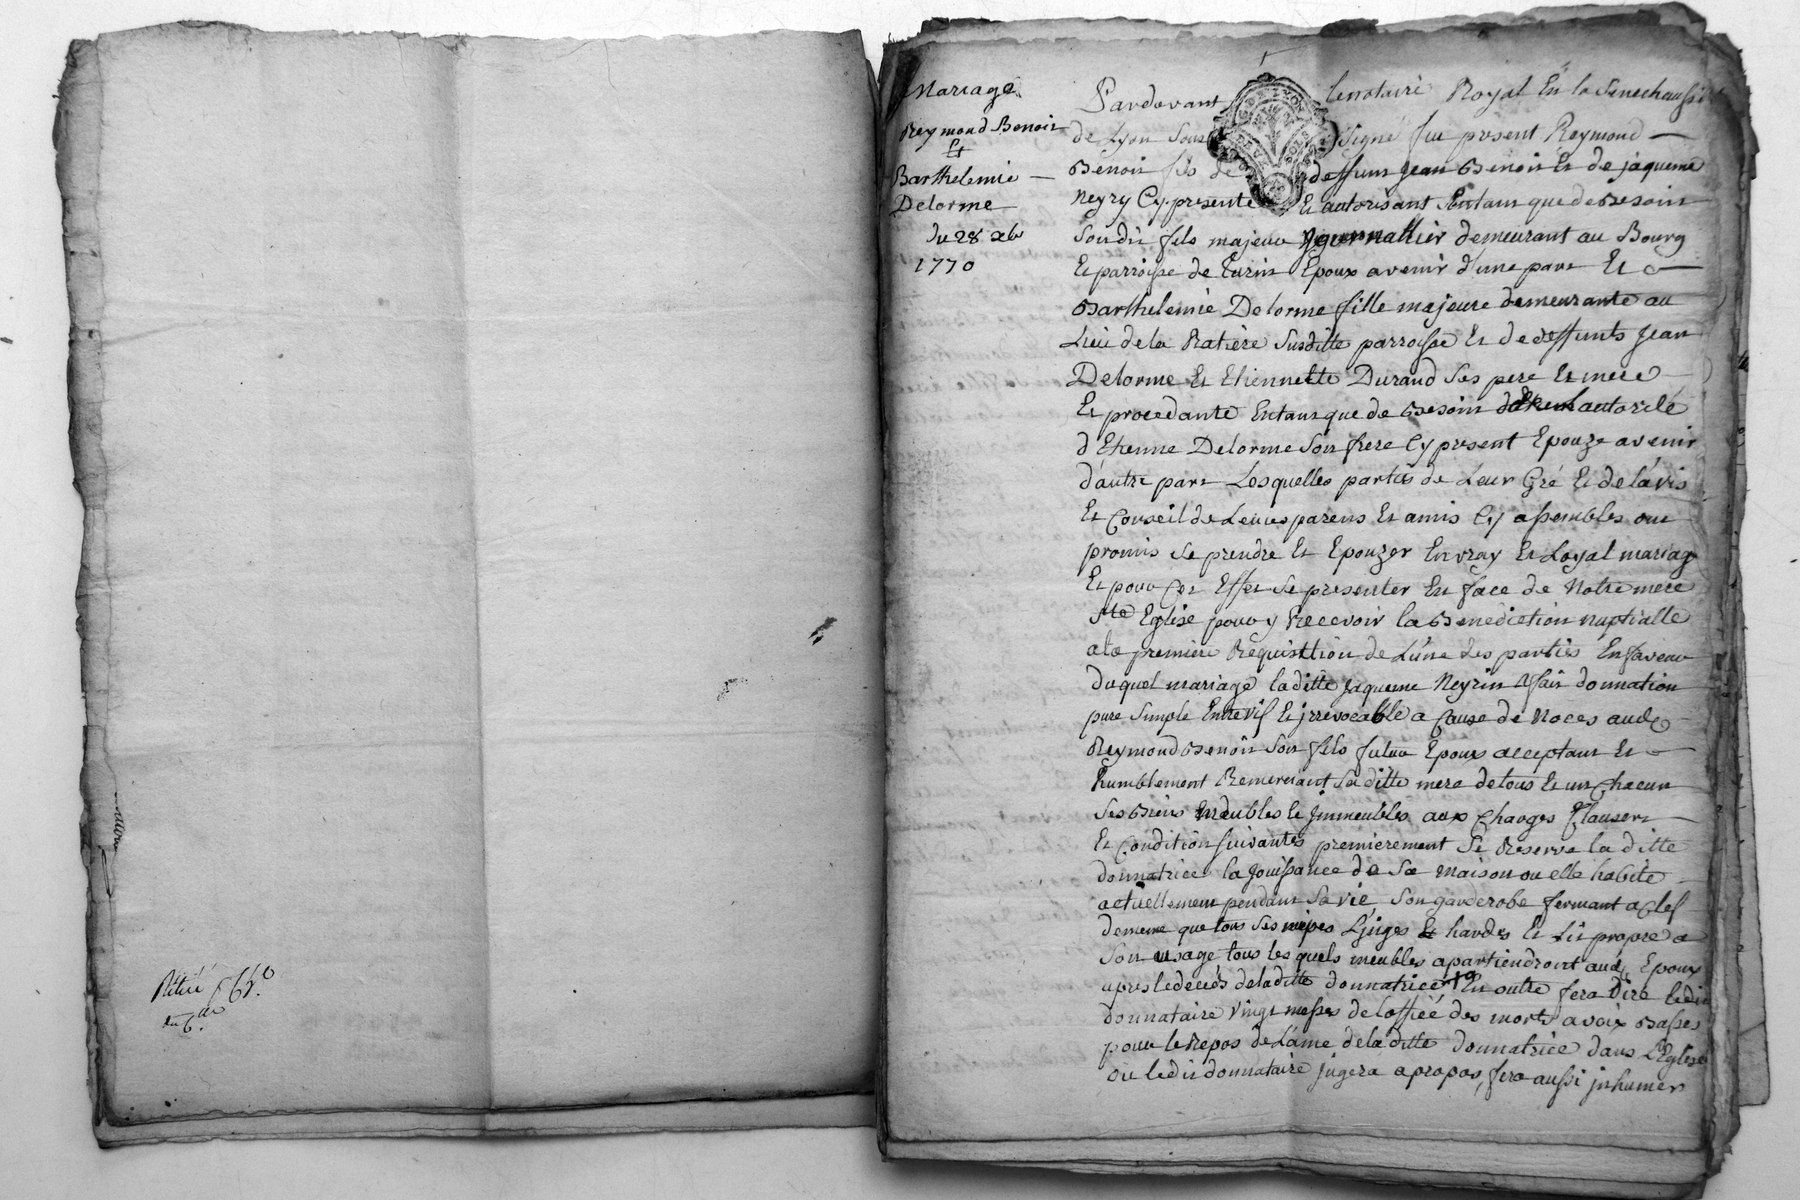 Mariage
Reymond Benoit
Et
Barthelemie
Delorme
du 28 xbr
1770
Pardevant Lenotaire Royal En la Senechaussé
de Lyon Sous Signé fut present Reymond
Benoit fils de deffunt Jean Benoit Et de jaqueme
Neyry Cy presente Et autorisant Entant que de Besoin
Son dit fils majeur journallier demeurant au Bourg
Et parroisse de Epoux avenir d'une part Et
Barthelemie Delorme fille majeure demeurante au
Lieu de la Ratiere Susditte parroisse Et de deffunts Jean
Delorme Et Etiennette Durand Ses pere Et mere
Et procedante Entant que de Besoin de l'autorité
d'Etienne Delorme Son frere Cy present Epouze avenir
d'autre part Lesquelles partis de Leur Gré Et de l'avis
Et Conseil de Leurs parens Et amis Cy assembles ont
promis Se prendre Et Epouzer En vray Et Loyal mariag
Et pour Cet Effet Se presenter En face de Notre mere
Ste Eglise pour y Recevoir la Benediction nuptialle
ala premiere Requisition de L'une des parties En faveur
duquel mariage laditte jaqueme Neyrin a fait donnation
pure Simple Entrevif Et jrrevocable a Cause de Noces aud
Reymond Benoit Son fils futur Epoux acceptant Et
humblement Remerciant Saditte mere de tous Et un Chacun
Ses Biens meubles Et jmmeubles aux Charges Clauses
Et Condition Suivantes premierement Se Reserve laditte
donnatrice la jouissance de Sa maison ou elle habite
actuellement pendant Sa vie, Son garderobe fermant a Clef
de meme que tous Ses nipes Linges Et hardes Et Lit propre a
Son usage tous les quels meubles apartiendront aud. Epoux
apres le decés de laditte donnatrice En outre fera dire ledit
donnataire Vingt messes de l'offiée des morts a voix Basses
pour le Repos de L'ame de laditte donnatrice dans L'Eglise
ou ledit donnataire jugera apropos, fera aussi jnhumer